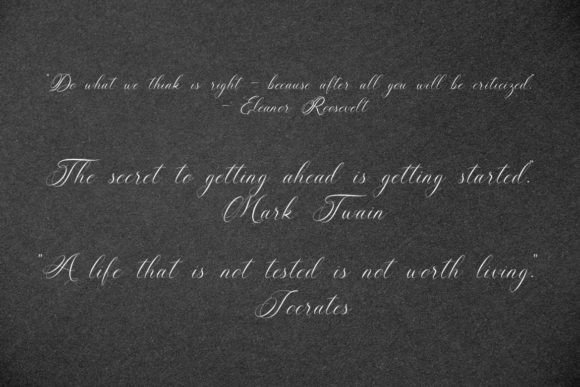 "Do what we think is right - because after all you will be criticized."
- Eleanor Roosevelt
The secret to getting ahead is getting started."
Mark Twain
"A life that is not tested is not worth living."
Socrates